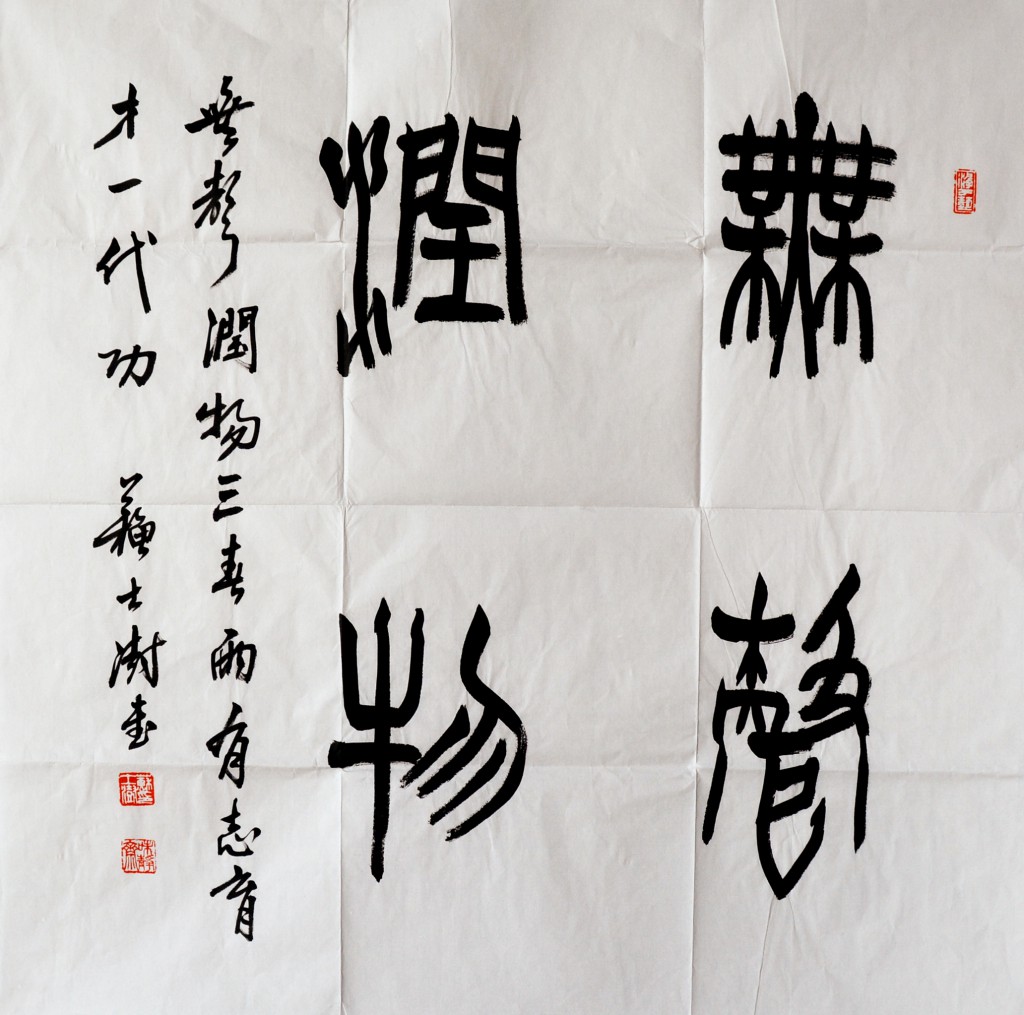 無聲
潤物
無聲潤物三春雨有志育
才一代功 蘇士澍書